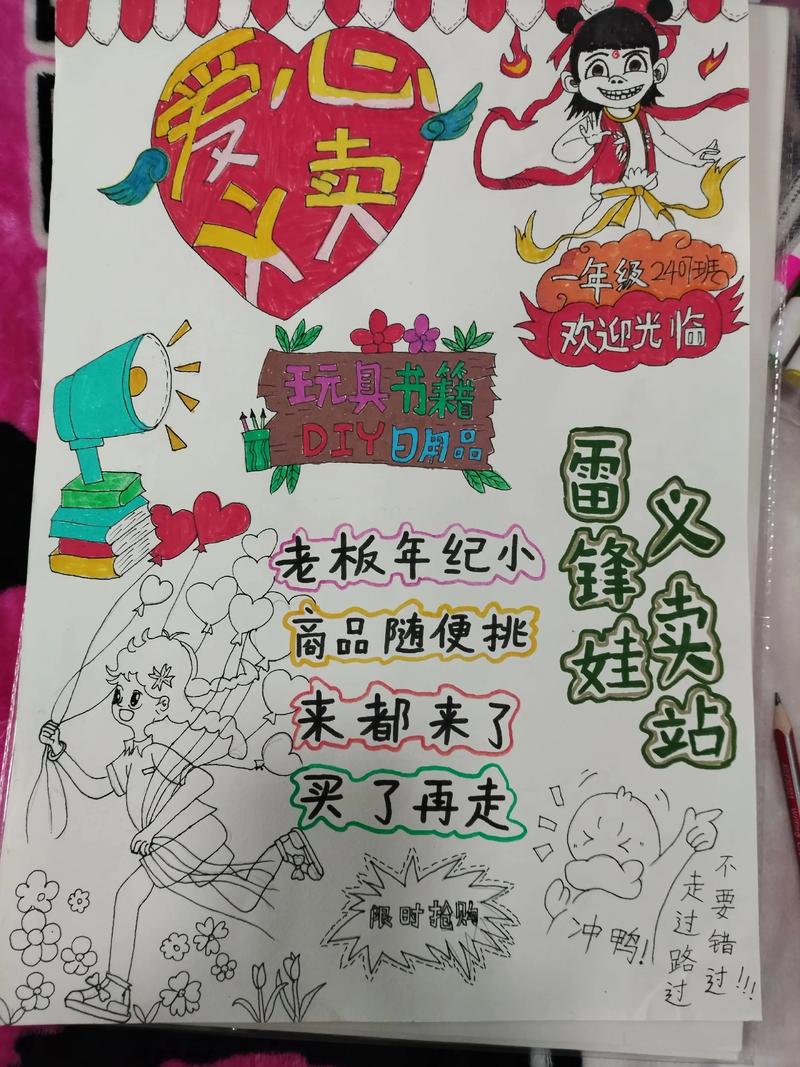 爱心
义卖
一年级 2407班
欢迎光临
玩具书籍
DIY日用品
雷锋娃
义卖站
老板年纪小
商品随便挑
来都来了
买了再走
限时抢购
冲鸭!
走过路过
不要错过!!!